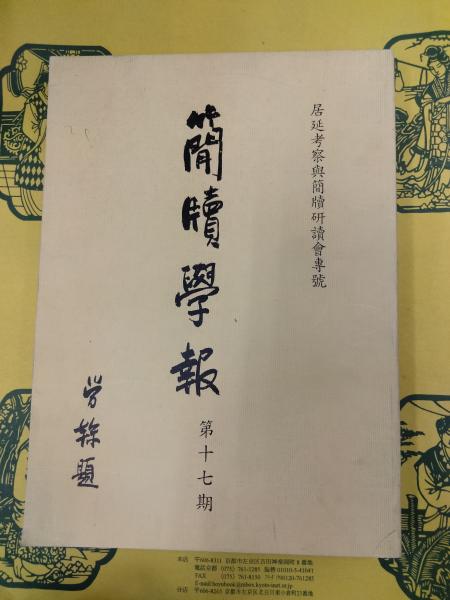 居延考察與簡牘研讀會專號
簡牘學報
第十七期
勞榦題
本店 〒606-8311 京都市左京区吉田神楽岡町8番地
電話京都 (075) 761-1285 振替01010-5-41041
FAX (075) 761-8150
E-mail:hoyubook@mbox.kyoto-inet.or.jp
分店 〒606-8265 京都市左京区北白川東小倉町23番地